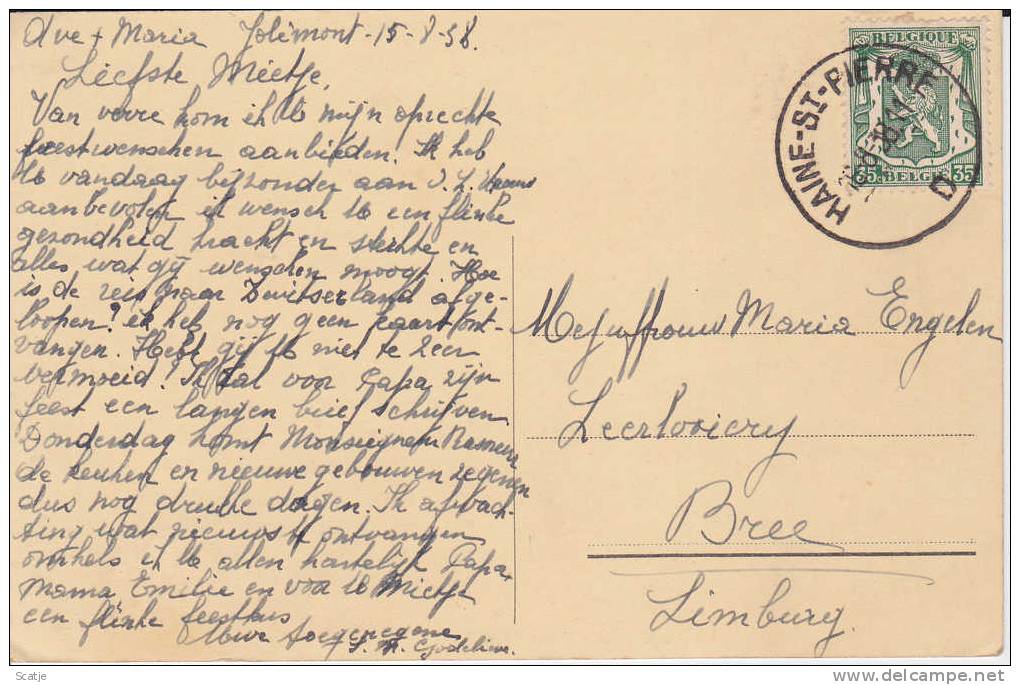 Ave + Maria Jolimont - 15-8-38.
Liefste Mietje,
Van verre kom ik U mijn oprechte
feestwenschen aanbieden. Ik heb
U vandaag bijzonder aan O. L.
aanbevolen ik wensch U een flinke
gezondheid kracht en sterkte en
alles wat gij wenschen moogt. Hoe
is de reis naar Zwitserland afge-
loopen? ik heb nog geen kaart ont-
vangen. Hebt gij U niet te zeer
vermoeid? Ik zal voor Papa zijn
feest een langen brief schrijven
Donderdag komt Monseigneur
de keuken en nieuwe gebouwen zegenen
dus nog drukke dagen. In afwach-
ting wat nieuws te ontvangen
omhels ik U allen hartelijk Papa,
Mama Emilie en voor U Mietje
een flinke feestkus
Uwe toegenegene
S. M. Godelieve.
BELGIQUE
35 BELGIE 35
HAINE-ST-PIERRE
D
Mejuffrouw Maria Engelen
Leerlooiery
Bree
Limburg
Scatje
delcampe.net